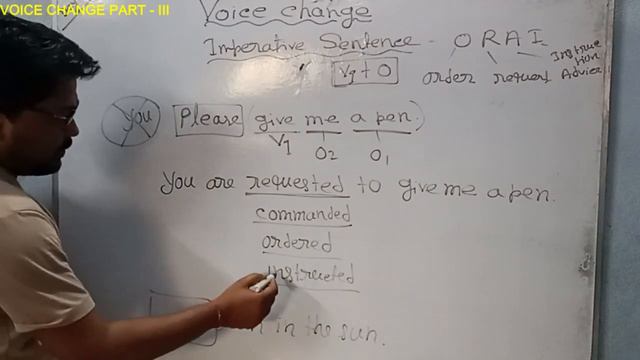 VOICE CHANGE PART - III
Voice change
Imperative Sentence - O R A I
V1 + O
order request Advice Instruction
You Please (give me a pen.)
V1 O2 O1
You are requested to give me a pen.
commanded
ordered
instructed
in the sun.